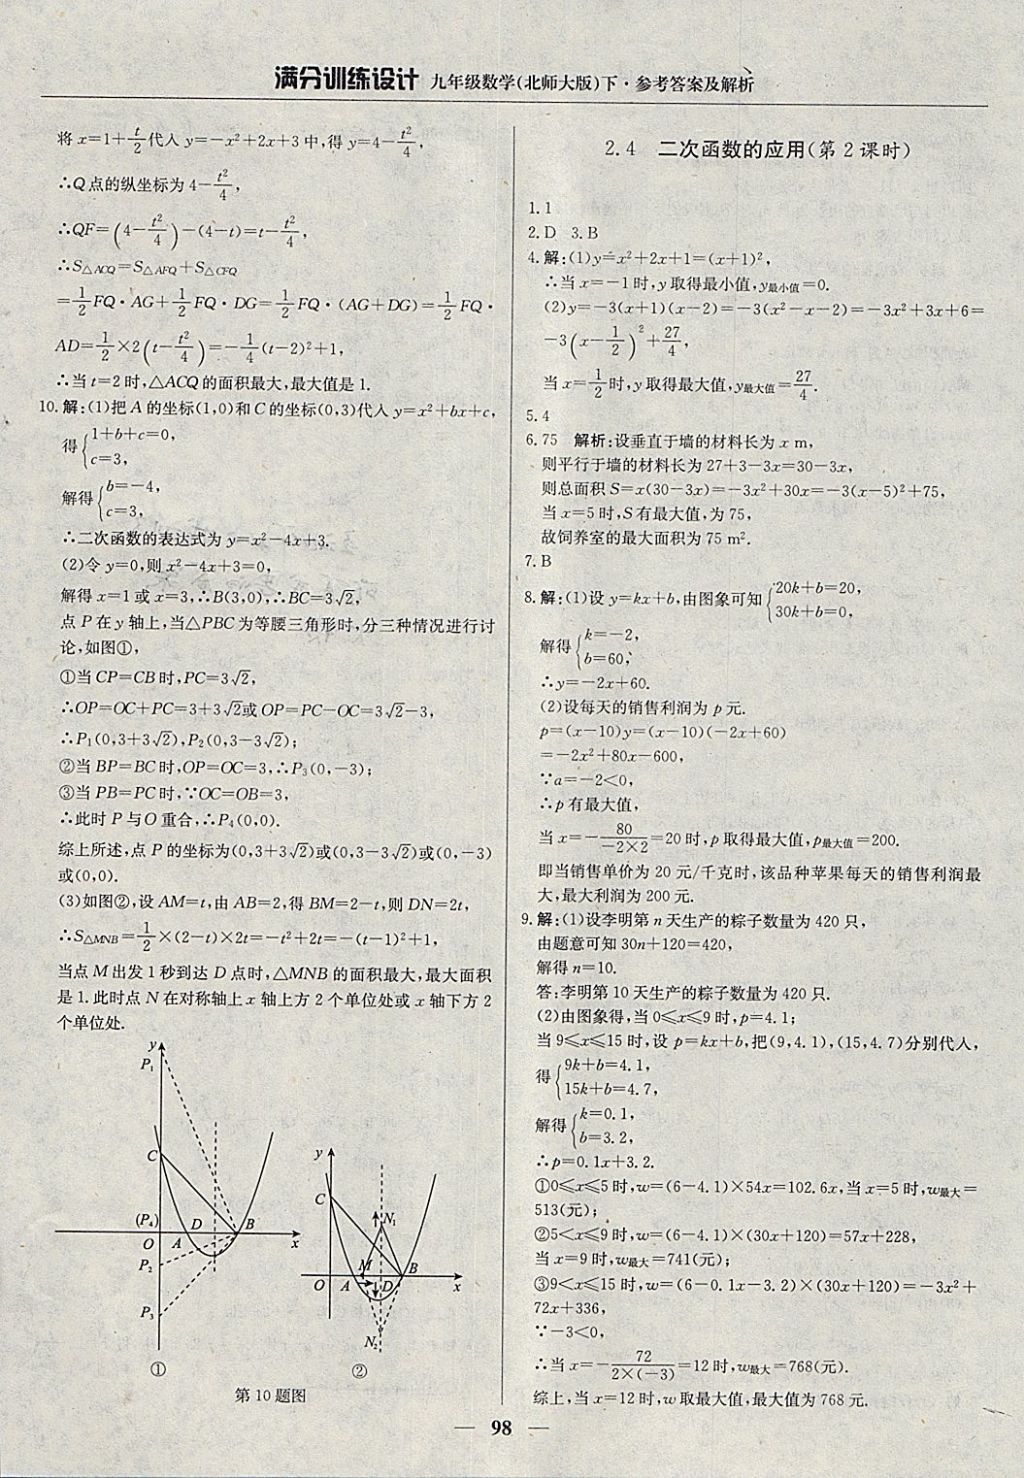 满分训练设计 九年级数学(北师大版)下·参考答案及解析
将 x=1+t/2代入 y=-x²+2x+3中,得 y=4-t²/4,
∴Q点的纵坐标为 4-t²/4,
∴QF=(4-t²/4)-(4-t)=t-t²/4,
∴S△ACQ=S△AFQ+S△CFQ
=1/2FQ·AG+1/2FQ·DG=1/2FQ·(AG+DG)=1/2FQ·
AD=1/2×2(t-t²/4)=-1/4(t-2)²+1,
∴当 t=2时,△ACQ的面积最大,最大值是1.
10.解:(1)把 A的坐标(1,0)和C的坐标(0,3)代入 y=x²+bx+c,
得{1+b+c=0,
c=3,
解得{b=-4,
c=3,
∴二次函数的表达式为 y=x²-4x+3.
(2)令 y=0,则 x²-4x+3=0,
解得 x=1或 x=3,∴B(3,0),∴BC=3√2,
点 P 在 y 轴上,当△PBC为等腰三角形时,分三种情况进行讨
论,如图①,
①当 CP=CB时,PC=3√2,
∴OP=OC+PC=3+3√2或OP=PC-OC=3√2-3,
∴P₁(0,3+3√2),P₂(0,3-3√2);
②当 BP=BC时,OP=OC=3,∴P₃(0,-3);
③当 PB=PC时,∵OC=OB=3,
∴此时 P与O重合,∴P₄(0,0).
综上所述,点 P的坐标为(0,3+3√2)或(0,3-3√2)或(0,-3)
或(0,0).
(3)如图②,设 AM=t,由 AB=2,得 BM=2-t,则 DN=2t,
∴S△MNB=1/2×(2-t)×2t=-t²+2t=-(t-1)²+1,
当点 M出发 1秒到达 D点时,△MNB的面积最大,最大面积
是 1.此时点 N在对称轴上x轴上方2个单位处或 x轴下方2
个单位处.
y
P₁
C
(P₄)
D
B
O
A
x
P₂
P₃
①
y
C
N₁
M
B
O
A
D
x
N₂
②
第10题图
2.4 二次函数的应用(第2课时)
1.1
2.D 3.B
4.解:(1)y=x²+2x+1=(x+1)²,
∴当 x=-1时,y取得最小值,y最小值=0.
(2)y=-3(x+1)(x-2)=-3(x²-x-2)=-3x²+3x+6=
-3(x-1/2)²+27/4,
当 x=1/2时,y取得最大值,y最大值=27/4.
5.4
6.75 解析:设垂直于墙的材料长为 x m,
则平行于墙的材料长为 27+3-3x=30-3x,
则总面积 S=x(30-3x)=-3x²+30x=-3(x-5)²+75,
当 x=5时,S有最大值,为 75,
故饲养室的最大面积为 75 m².
7.B
8.解:(1)设 y=kx+b,由图象可知{20k+b=20,
30k+b=0,
解得{k=-2,
b=60,
∴y=-2x+60.
(2)设每天的销售利润为 p元.
p=(x-10)y=(x-10)(-2x+60)
=-2x²+80x-600,
∵a=-2<0,
∴p有最大值,
当 x=-80/(-2×2)=20时,p取得最大值,p最大值=200.
即当销售单价为 20 元/千克时,该品种苹果每天的销售利润最
大,最大利润为 200 元.
9.解:(1)设李明第 n天生产的粽子数量为 420 只,
由题意可知 30n+120=420,
解得 n=10.
答:李明第 10天生产的粽子数量为 420 只.
(2)由图象得,当 0≤x≤9时,p=4.1;
当 9≤x≤15时,设 p=kx+b,把(9,4.1),(15,4.7)分别代入,
得{9k+b=4.1,
15k+b=4.7,
解得{k=0.1,
b=3.2,
∴p=0.1x+3.2.
①0≤x≤5时,w=(6-4.1)×54x=102.6x,当 x=5时,w最大=
513(元);
②5<x≤9时,w=(6-4.1)×(30x+120)=57x+228,
当 x=9时,w最大=741(元);
③9<x≤15时,w=(6-0.1x-3.2)×(30x+120)=-3x²+
72x+336,
∵-3<0,
∴当 x=-72/(2×(-3))=12时,w最大=768(元).
综上,当 x=12时,w取最大值,最大值为 768元.
— 98 —